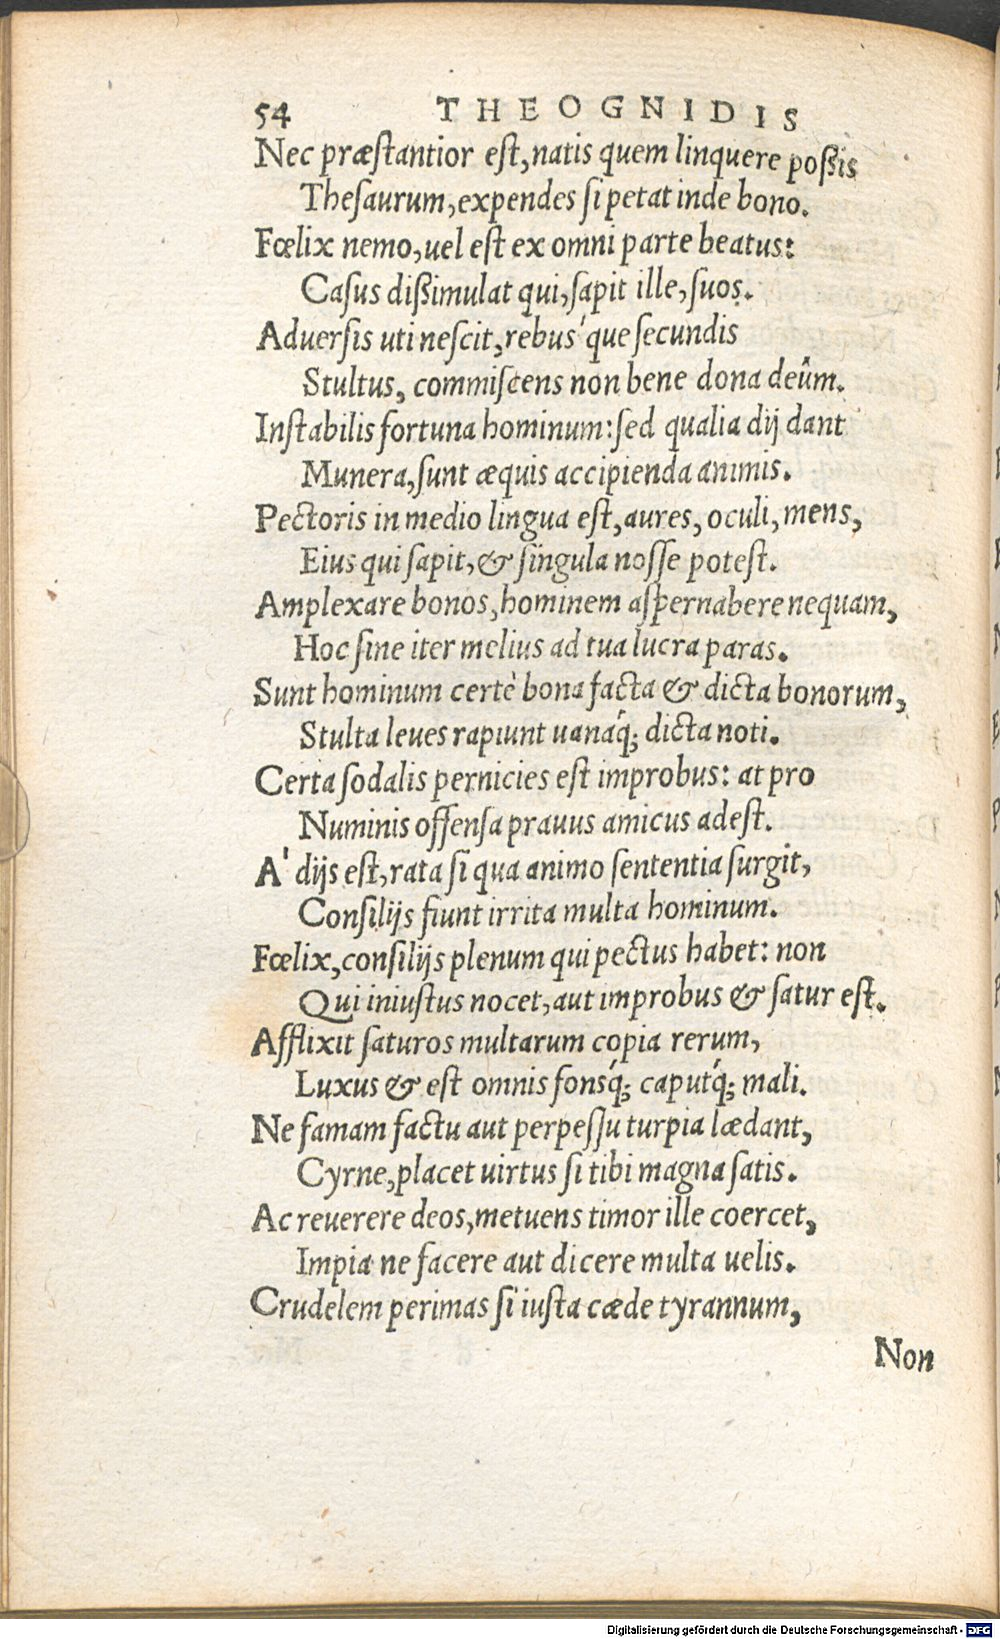 54 THEOGNIDIS
Nec præstantior est, natis quem linquere poßis
Thesaurum, expendes si petat inde bono.
Fœlix nemo, uel est ex omni parte beatus:
Casus dißimulat qui, sapit ille, suos.
Aduersis uti nescit, rebus'que secundis
Stultus, commiscens non bene dona deûm.
Instabilis fortuna hominum: sed qualia dij dant
Munera, sunt æquis accipienda animis.
Pectoris in medio lingua est, aures, oculi, mens,
Eius qui sapit, & singula nosse potest.
Amplexare bonos, hominem aspernabere nequam,
Hoc sine iter melius ad tua lucra paras.
Sunt hominum certè bona facta & dicta bonorum,
Stulta leues rapiunt uanaq́; dicta noti.
Certa sodalis pernicies est improbus: at pro
Numinis offensa prauus amicus adest.
A' dijs est, rata si qua animo sententia surgit,
Consilijs fiunt irrita multa hominum.
Fœlix, consilijs plenum qui pectus habet: non
Qui iniustus nocet, aut improbus & satur est.
Afflixit saturos multarum copia rerum,
Luxus & est omnis fonsq́; caputq́; mali.
Ne famam factu aut perpessu turpia lædant,
Cyrne, placet uirtus si tibi magna satis.
Ac reuerere deos, metuens timor ille coercet,
Impia ne facere aut dicere multa uelis.
Crudelem perimas si iusta cæde tyrannum,
Non
Digitalisierung gefördert durch die Deutsche Forschungsgemeinschaft - DFG